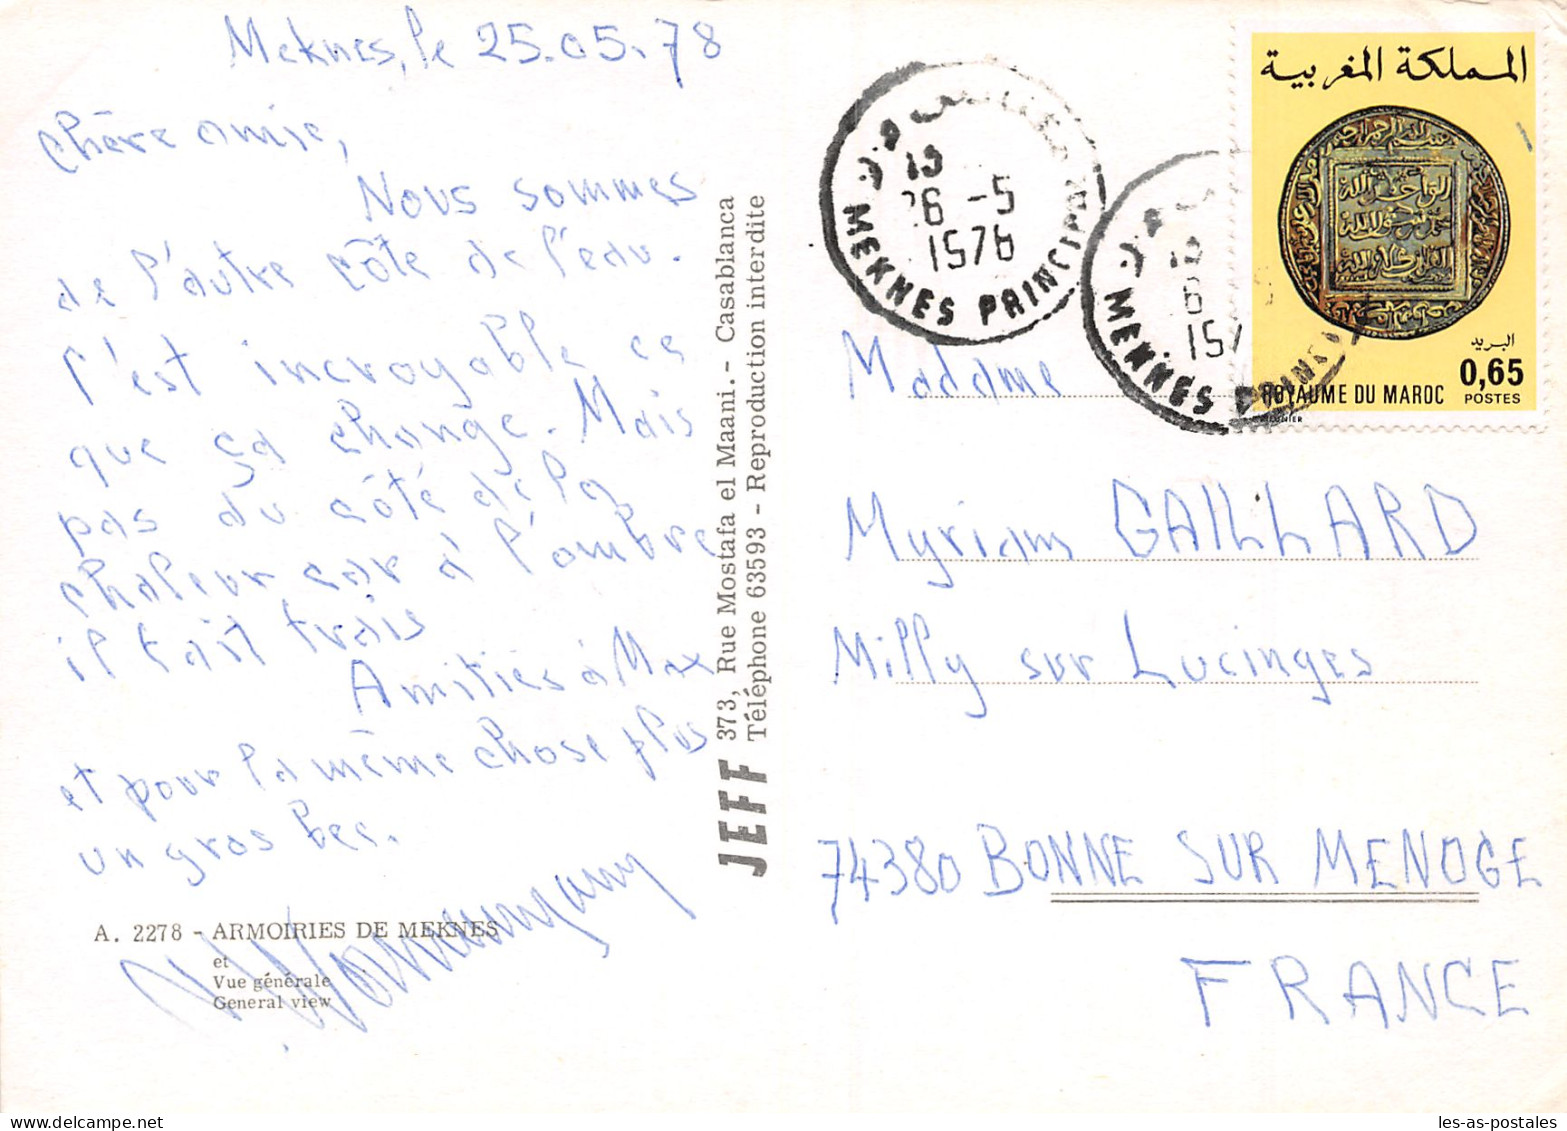 Meknes, le 25.05.78
Chère amie,
Nous sommes
de l'autre côté de l'eau.
C'est incroyable ce
que ça change. Mais
pas du côté de la
chaleur car à l'ombre
il fait frais
Amitiés à Max
et pour la même chose plus
un gros bec.
A. 2278 - ARMOIRIES DE MEKNES
et
Vue générale
General view
JEFF 373, Rue Mostafa el Maani. - Casablanca
Téléphone 63593 - Reproduction interdite
19
26 -5
1978
MEKNES PRINCIPAL
MEKNES PRINCIPAL
المملكة المغربية
البريد
0,65
POSTES
ROYAUME DU MAROC
Madame
Myriam GAILLARD
Milly sur Lucinges
74380 BONNE SUR MENOGE
FRANCE
les-as-postales